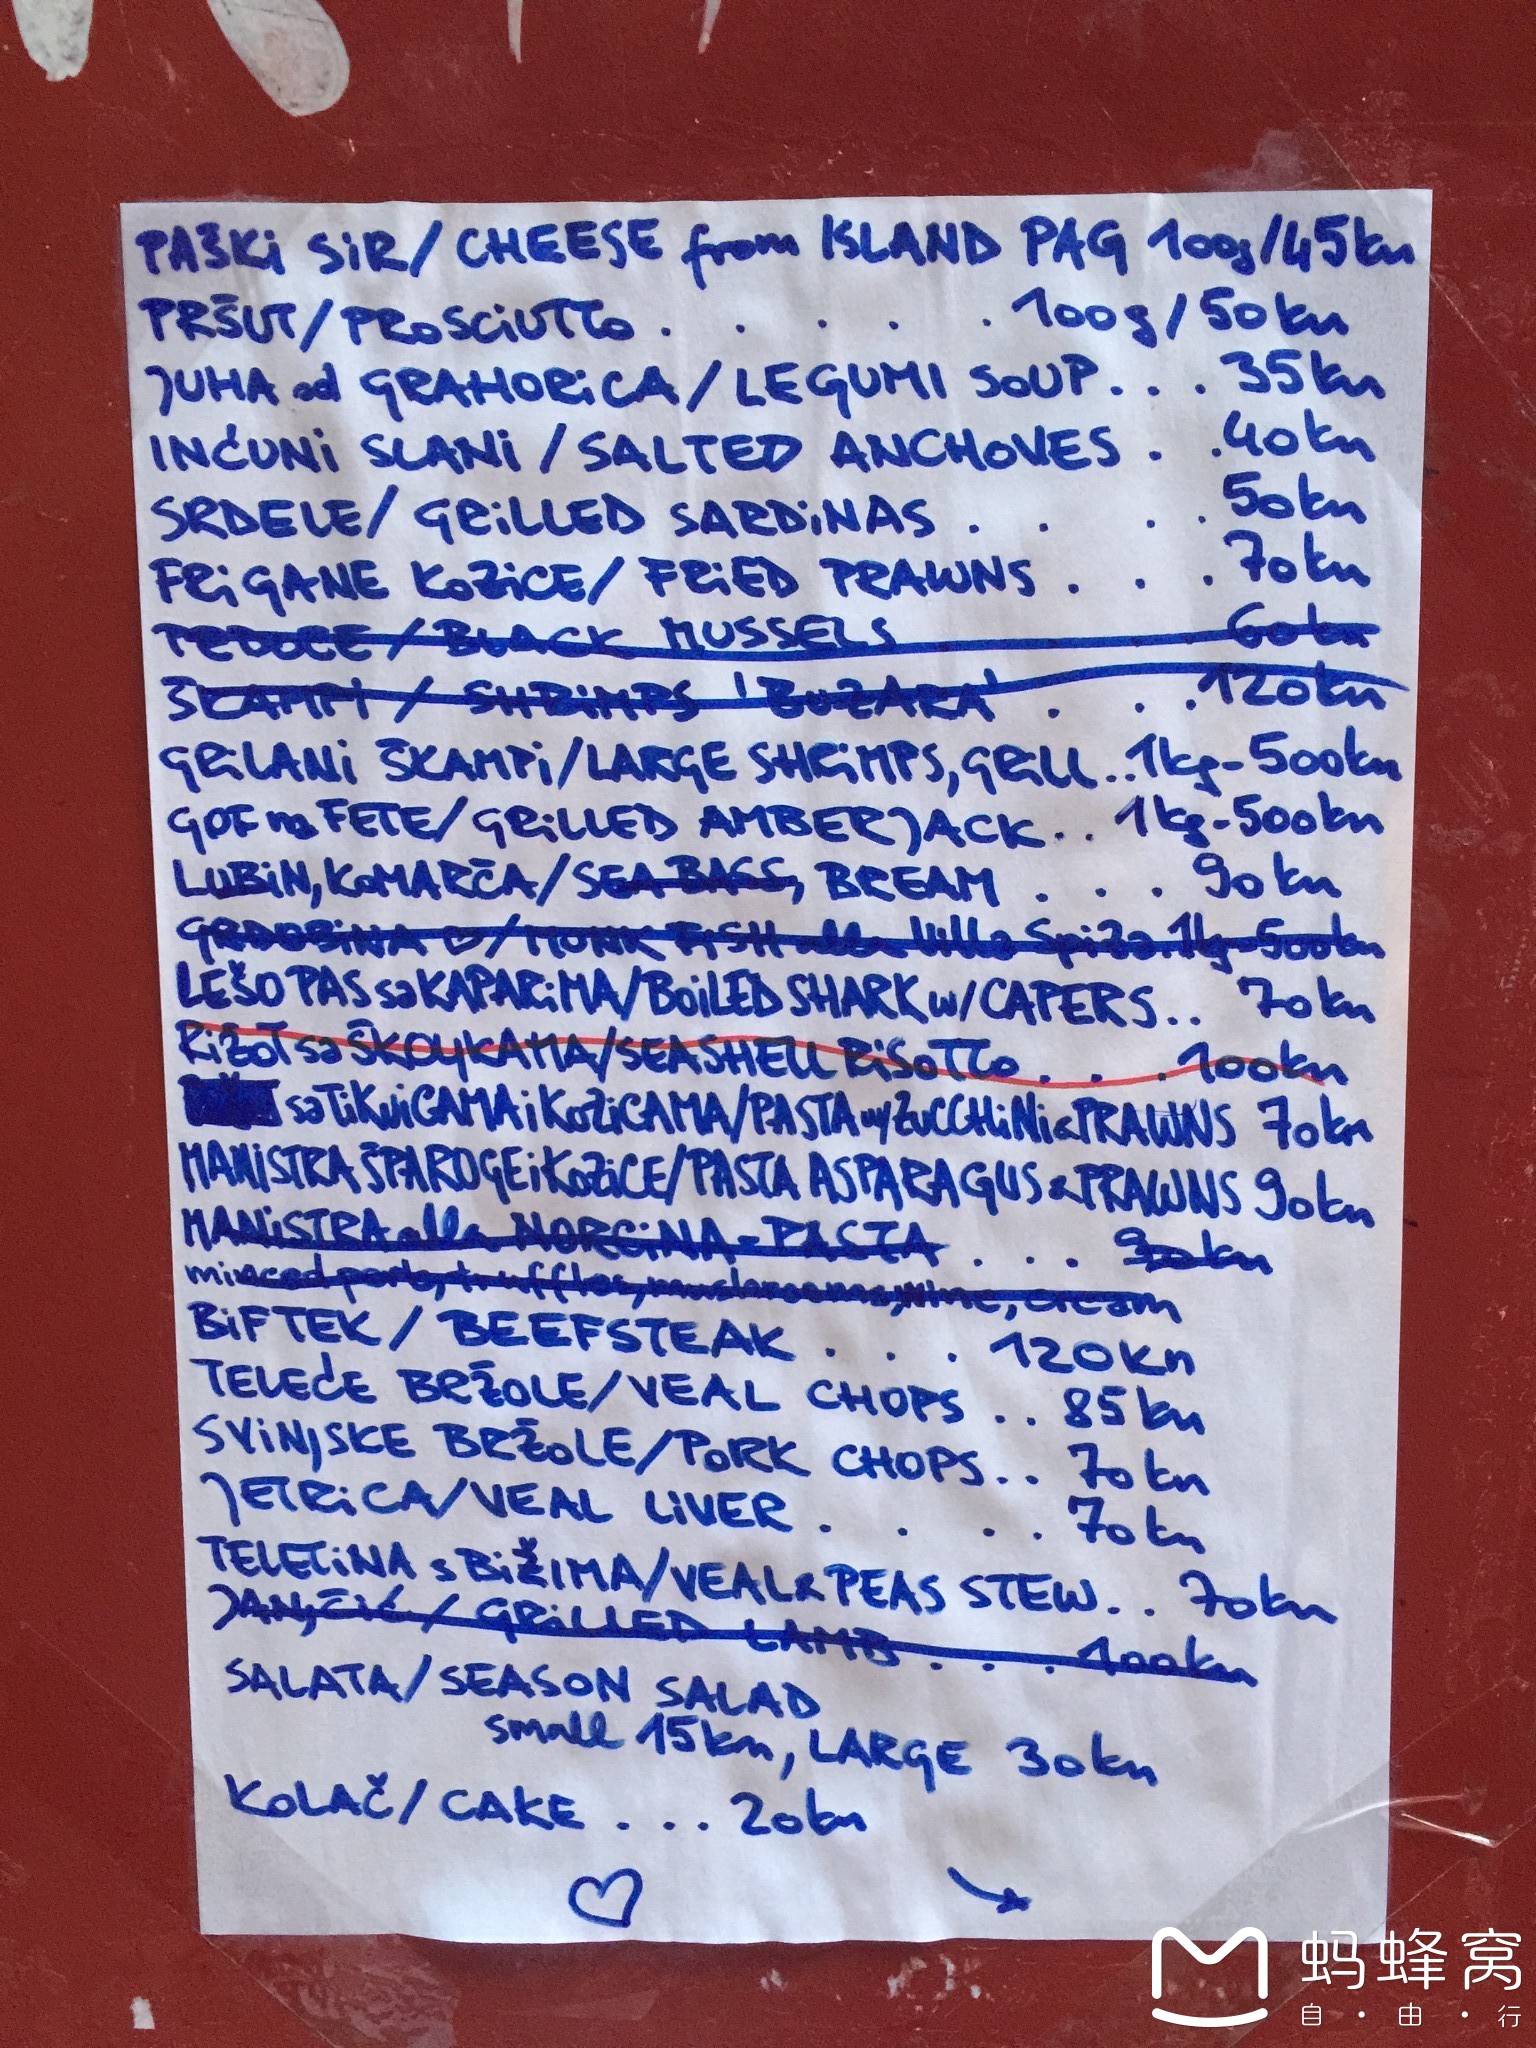 PAŠKI SIR/CHEESE from ISLAND PAG 100g/45kn
PRŠUT/PROSCIUTTO . . . . . 100g/50kn
JUHA od GRAHORICA/LEGUMI SOUP. . . 35kn
INĆUNI SLANI/SALTED ANCHOVES . . 40kn
SRDELE/GRILLED SARDINAS . . . . 50kn
FRIGANE KOZICE/FRIED PRAWNS . . . 70kn
PEDOCE/BLACK MUSSELS . . 60kn
ŠKAMPI/SHRIMPS 'BUZARA' . . . 120kn
GRILANI ŠKAMPI/LARGE SHRIMPS, GRILL..1kg-500kn
GOF na FETE/GRILLED AMBERJACK.. 1kg-500kn
LUBIN, KOMARČA/SEA BASS, BREAM . . . 90kn
GRDOBINA /MONK FISH alla Villa Spiza.1kg-500kn
LEŠO PAS sa KAPARIMA/BOILED SHARK w/CAPERS.. 70kn
RIŽOT sa ŠKOLJKAMA/SEASHELL RISOTTO . . . 100kn
sa TIKVICAMA i KOZICAMA/PASTA w/ZUCCHINI & PRAWNS 70kn
MANISTRA ŠPAROGE i KOZICE/PASTA ASPARAGUS & PRAWNS 90kn
MANISTRA alla NORCINA-PASTA . . . 90kn
minced pork, truffles, mushrooms, wine, cream
BIFTEK/BEEFSTEAK . . . 120kn
TELEĆE BRŽOLE/VEAL CHOPS .. 85kn
SVINJSKE BRŽOLE/PORK CHOPS.. 70kn
JETRICA/VEAL LIVER . . . . 70kn
TELETINA s BIŽIMA/VEAL & PEAS STEW.. 70kn
JANJČIĆ/GRILLED LAMB . . . 100kn
SALATA/SEASON SALAD
small 15kn, LARGE 30kn
KOLAČ/CAKE . . . 20kn
蚂蜂窝
自·由·行